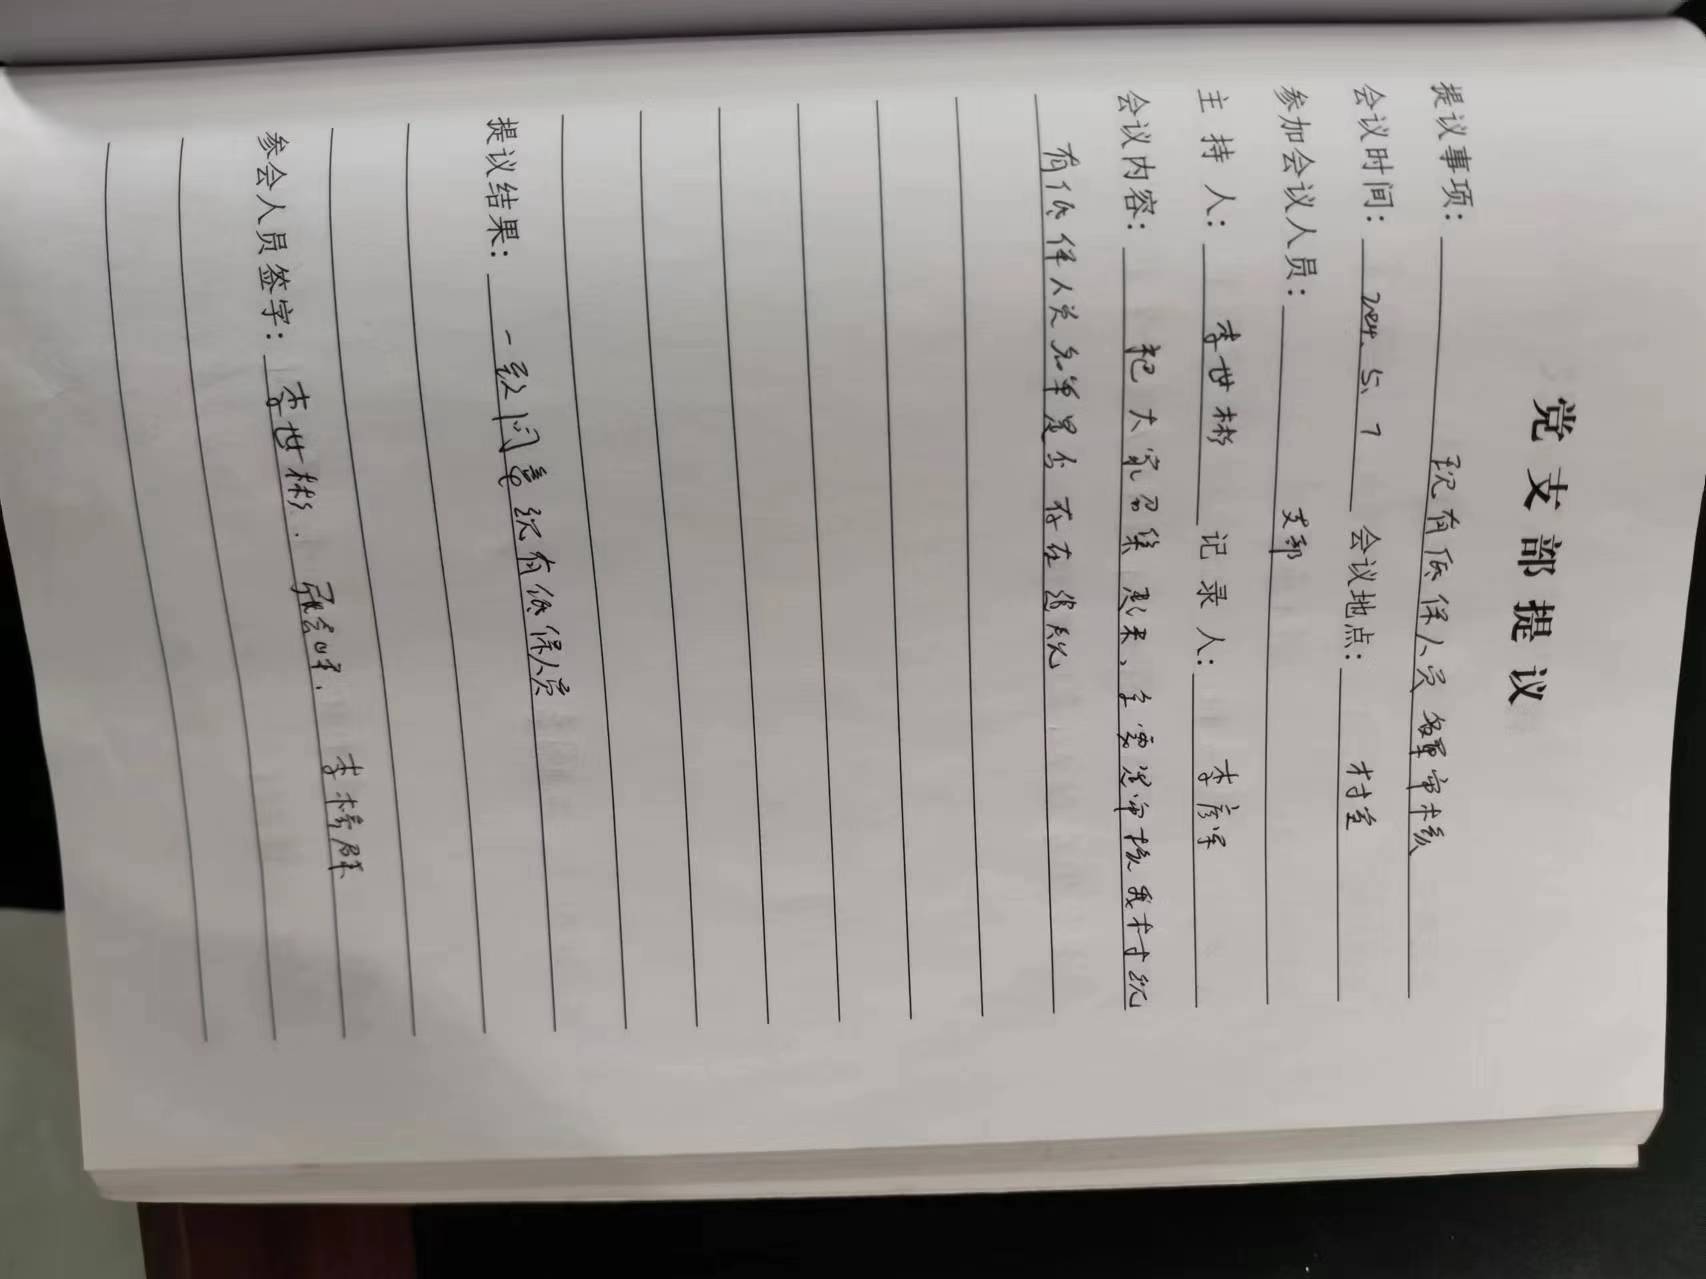 党支部提议
提议事项：现有低保人员名单审核
会议时间：2024.5.7 会议地点：村室
参加会议人员：支部
主持人：李世彬 记录人：李彦军
会议内容：把大家召集起来，主要是审核我村现
有低保人员名单是否存在违规
提议结果：一致同意现有低保人员
参会人员签字：李世彬. 李桥群